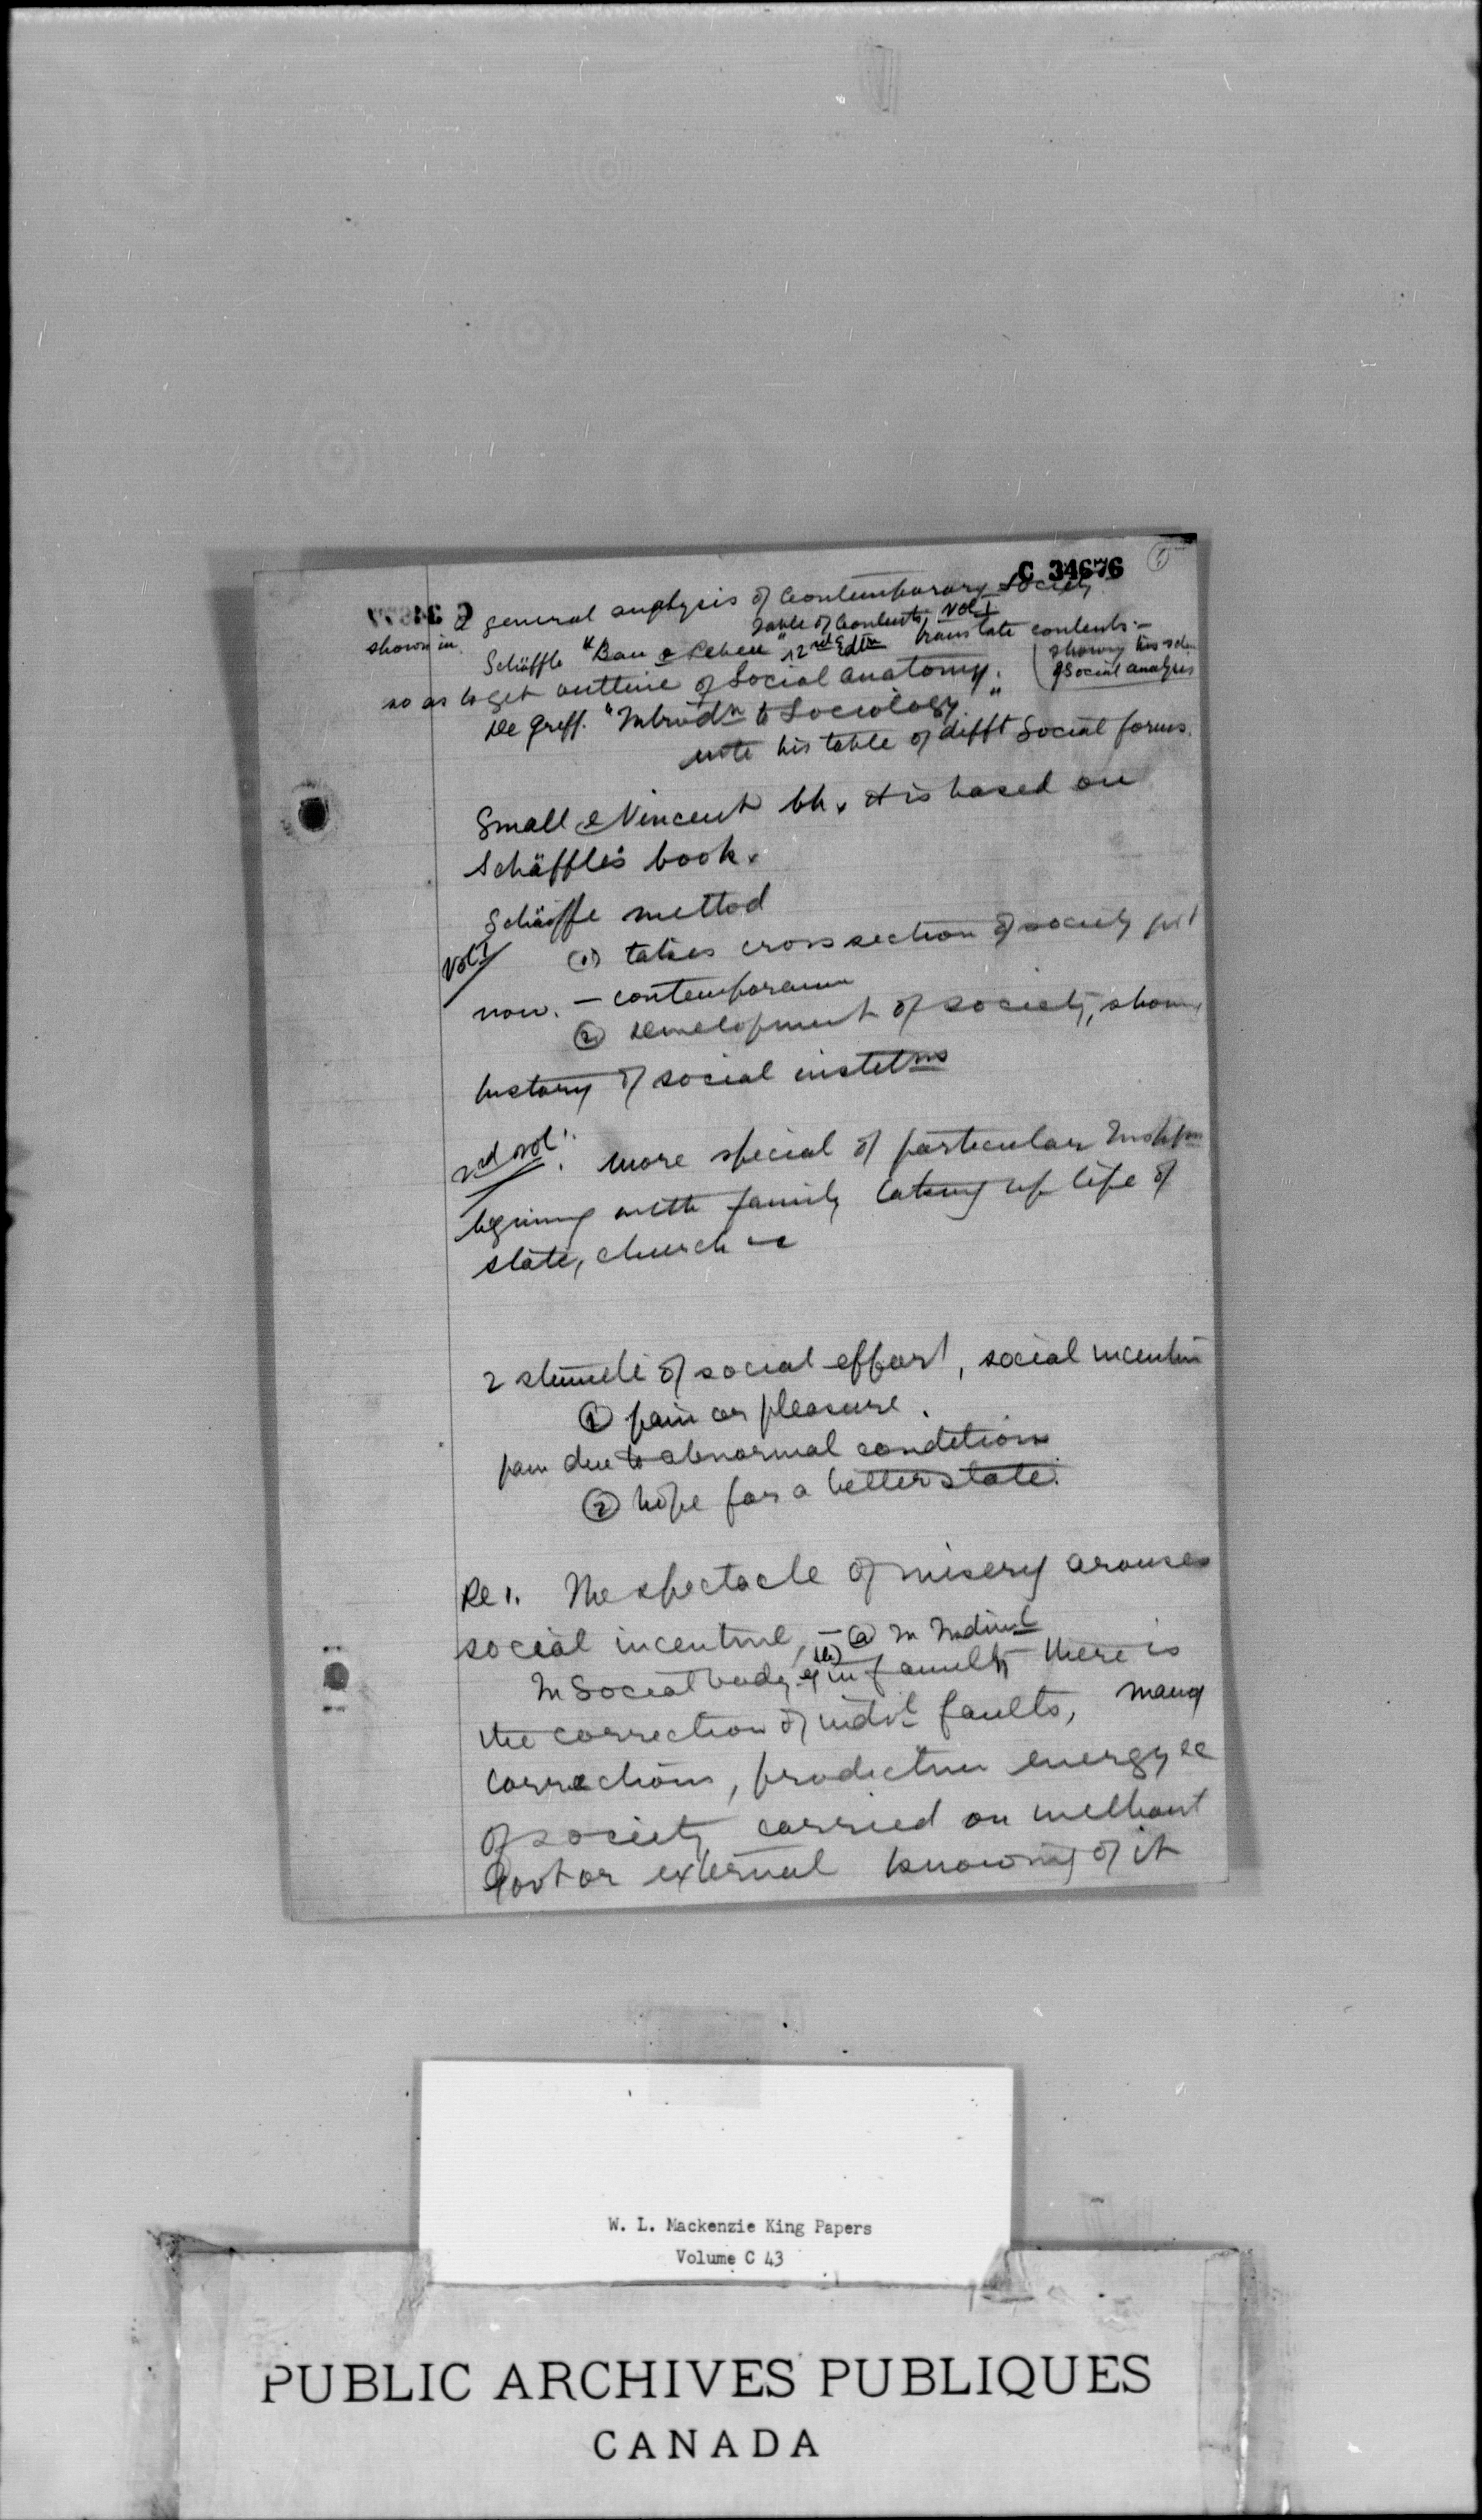 C 34676
a general analysis of Contemporary Society
shown in Table of Contents, Vol I
Schäffle "Bau & Leben" 2nd Edtn translate contents. —
(showing his
of Social analysis
so as to get outline of Social anatomy.
De Greff. "Introdn to Sociology"
note his table of difft Social forms.
Small & Vincent bk. It is based on
Schäffle's book.
Schäffle method
Vol I
(1) takes cross section of society just
now. — contemporane
(2) development of society, showg
history of social institns
2nd vol:
more special of particular Instns
begining with family taking up life of
state, church &c
2 stimuli of social effort, social incentive
(1) pain or pleasure.
pain due to abnormal conditions
(2) hope for a better state.
Re 1. The spectacle of misery arouses
social incentive, — (a) In Indivl
In Social body, (b) eg in family there is
the correction of indivl faults, many
corrections, productive energy &c
of society carried on without
Govt or external knowing of it
W. L. Mackenzie King Papers
Volume C 43
PUBLIC ARCHIVES PUBLIQUES
CANADA